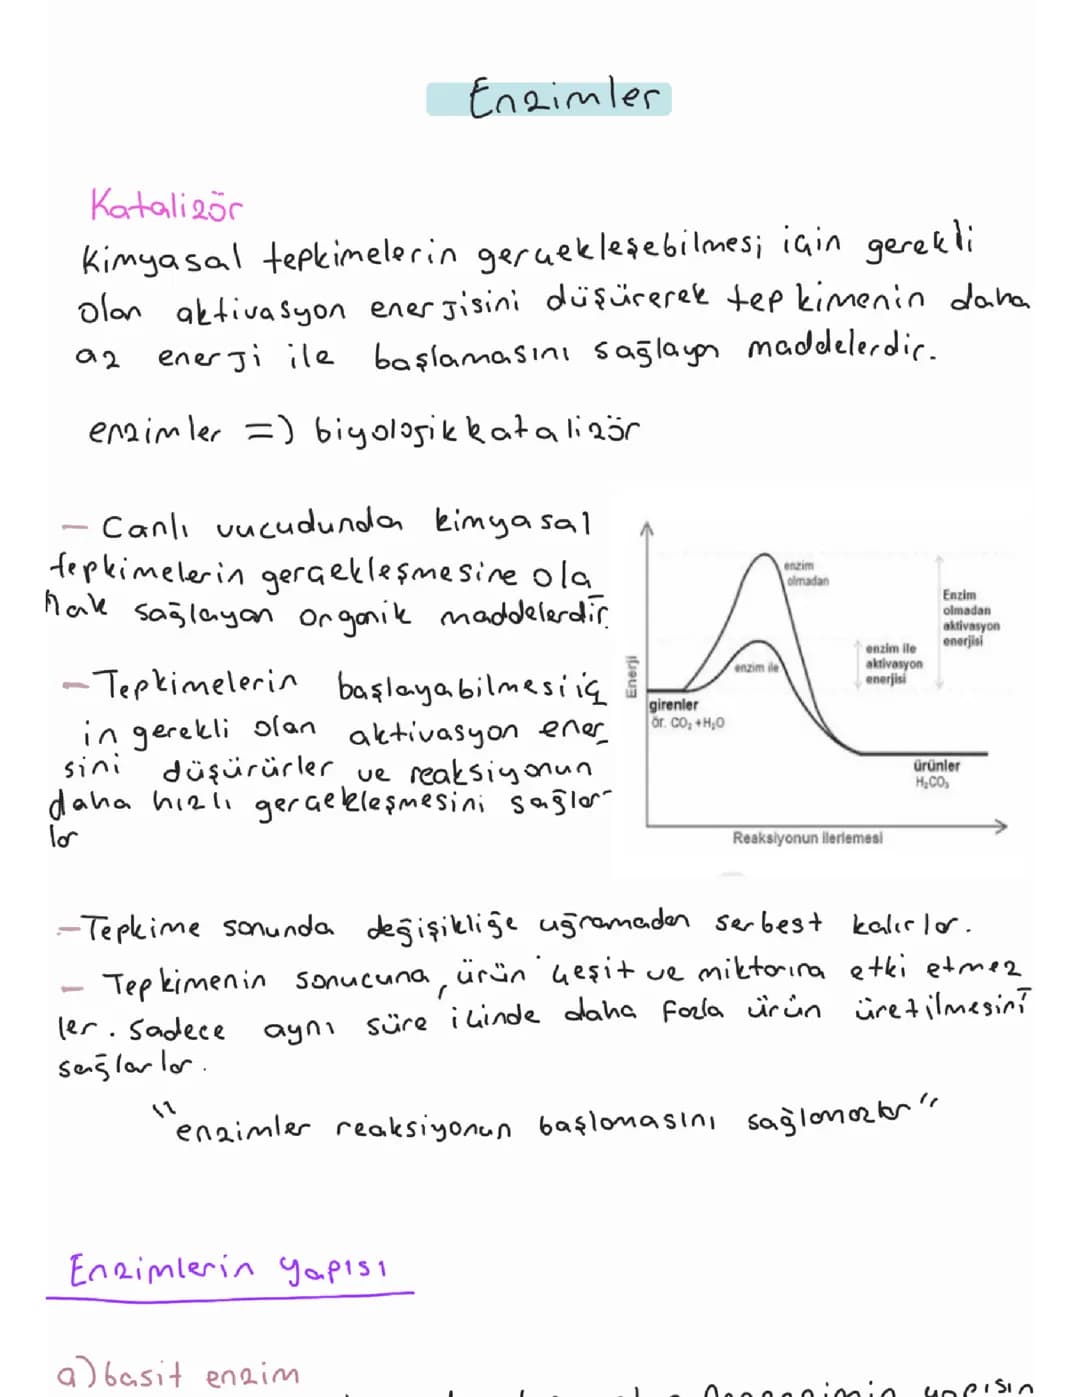 Enzimler
Katalizör
Kimyasal tepkimelerin gerçekleşebilmesi için gerekli
olan aktivasyon enerjisini düşürerek tepkimenin daha
az enerji ile başlamasını sağlayan maddelerdir.
enzimler => biyolojik katalizör
- Canlı vucudunda kimyasal
tepkimelerin gerçekleşmesine ola
nak sağlayan organik maddelerdir.
- Tepkimelerin başlayabilmesi iç
in gerekli olan aktivasyon ener
sini düşürürler ve reaksiyonun
daha hızlı gerçekleşmesini sağlar-
lar
enzim
olmadan
Enzim
olmadan
aktivasyon
enerjisi
enzim ile
aktivasyon
enerjisi
enzim ile
Enerji
girenler
ör. CO₂ +H₂O
ürünler
H₂CO₃
Reaksiyonun ilerlemesi
- Tepkime sonunda değişikliğe uğramadan serbest kalırlar.
- Tepkimenin sonucuna, ürün çeşit ve miktarına etki etmez
ler. Sadece aynı süre içinde daha fazla ürün üretilmesini
sağlarlar.
"enzimler reaksiyonun başlamasını sağlamazlar"
Enzimlerin yapısı
a) basit enzim